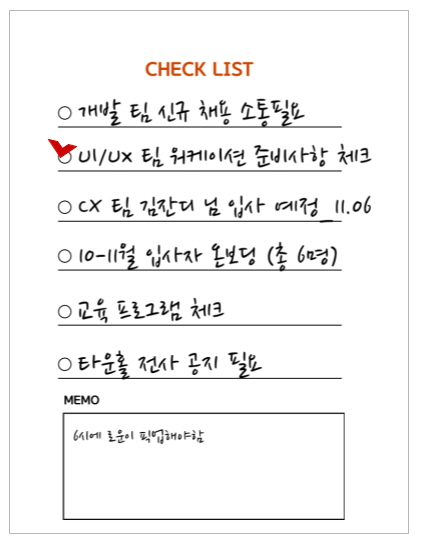 CHECK LIST
개발 팀 신규 채용 소통필요
UI/UX 팀 워케이션 준비사항 체크
CX 팀 김잔디 님 입사 예정_11.06
10-11월 입사자 온보딩 (총 6명)
교육 프로그램 체크
타운홀 전사 공지 필요
MEMO
6시에 로운이 픽업해야함